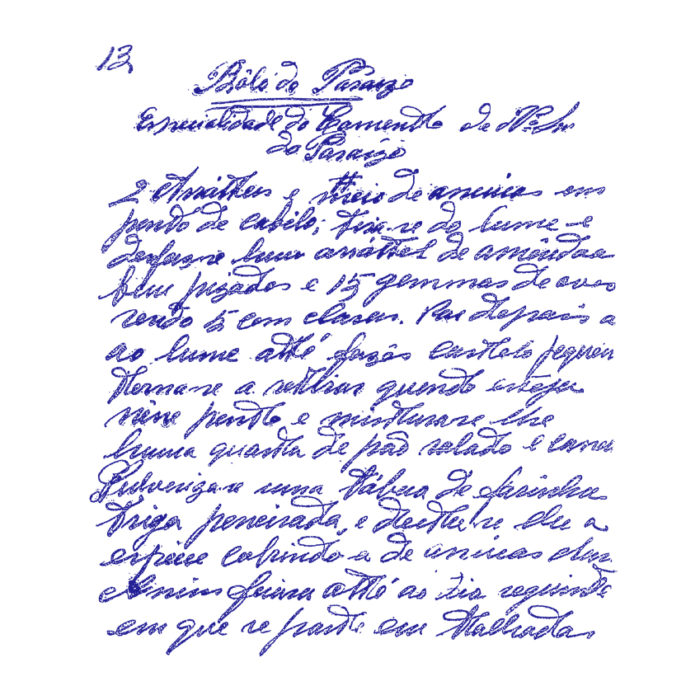 13
Bôlo do Paraizo
Especialidade do Convento de Nª Snr
do Paraizo
2 Arráteis e meio de assucar em
ponto de cabelo; tira-se do lume e
desfaz-se hum arrátel de amêndoa
bem pizados e 15 gemmas de ovos
sendo 5 com claras. Poe depois a
ao lume athé fazer castelo pequen
torna-se a retirar quando esteja
nesse ponto e misturase lhe
huma quarta de pão ralado e canel
Pulveriza-se uma tábua de farinha
triga peneirada, e deita-se
cobrindo-a de
assim ficam athé ao dia seguinte
em que se parte em talhadas